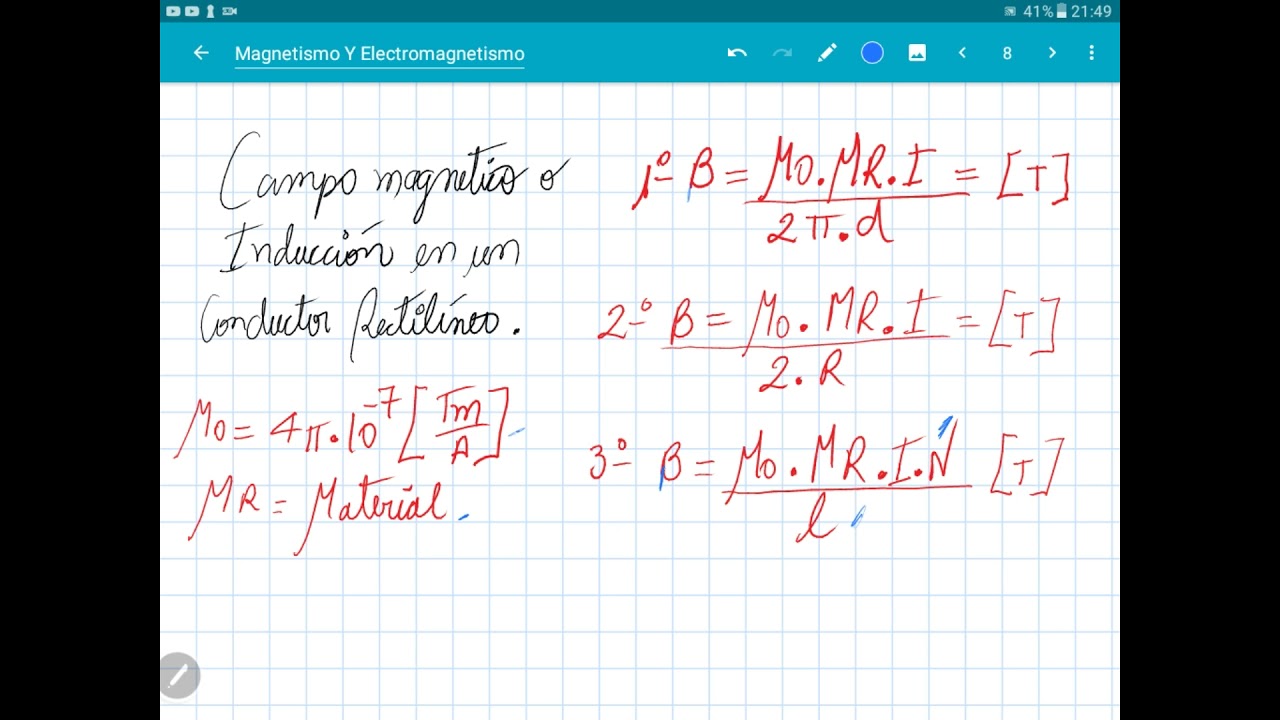 41% 21:49
Magnetismo Y Electromagnetismo 8
Campo magnetico o
Inducción en un
Conductor Rectilíneo.
μ0 = 4π·10⁻⁷ [Tm/A]
μR = Material
1º- B = μ0·μR·I / 2π·d = [T]
2-º B = μ0·μR·I / 2·R = [T]
3º- B = μ0·μR·I·N / l [T]